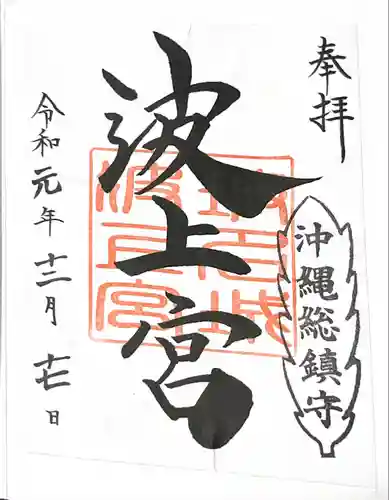 奉拝
沖縄総鎮守
波上宮
令和元年十二月十七日